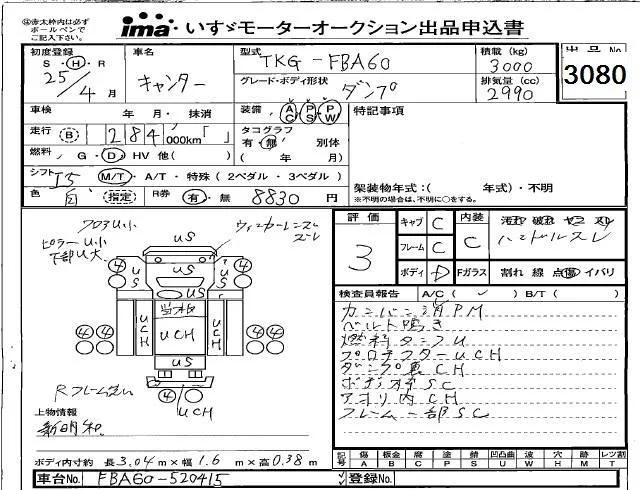 ※太枠内は必ず
ボールペンで
ご記入下さい。
ima いすゞモーターオークション出品申込書
初度登録
S・H・R
25/4月
車名
キャンター
型式
TKG-FBA60
積載 (kg)
3000
出品No
3080
グレード・ボディ形状
ダンプ
排気量 (cc)
2990
車検 年・月・抹消
装備 AC PS PW
特記事項
走行 B 284,000km「 」
タコグラフ
有・無 別体
( 年 月)
燃料 G・D・HV 他( )
シフト I5 M/T・A/T・特殊 (2ペダル・3ペダル)
架装物年式:( 年式)・不明
※不明の場合は、不明に○をする。
色 白 指定 R券 有・無 8830円
評価
3
キャブ C
フレーム C
ボディ D
内装
C
ハンドルスレ
Fガラス 割れ 線 点 傷 イバリ
フロアU小
ピラーU小
下部U大
ウィンカーレンズ
スレ
US
4
4
US
US
4
4
US
UCH
UCH
UCH
US
4 4
4 4
4
UCH
検査員報告 A/C( ✓ ) B/T( )
カンバン消PM
ベルト鳴き
燃料タンクU
プロテクターUCH
ダンプ裏CH
ボデー床SC
アオリ内CH
フレーム一部SC
上物情報
新明和
ボディ内寸約 長3.04m×幅1.6m×高0.38m
記号
傷 A
板金 B
腐 C
塗 P
錆 S
凹凸曲 U
波 W
穴 H
跡 M
レツ割 T
車台No. FBA60-520415
登録No.